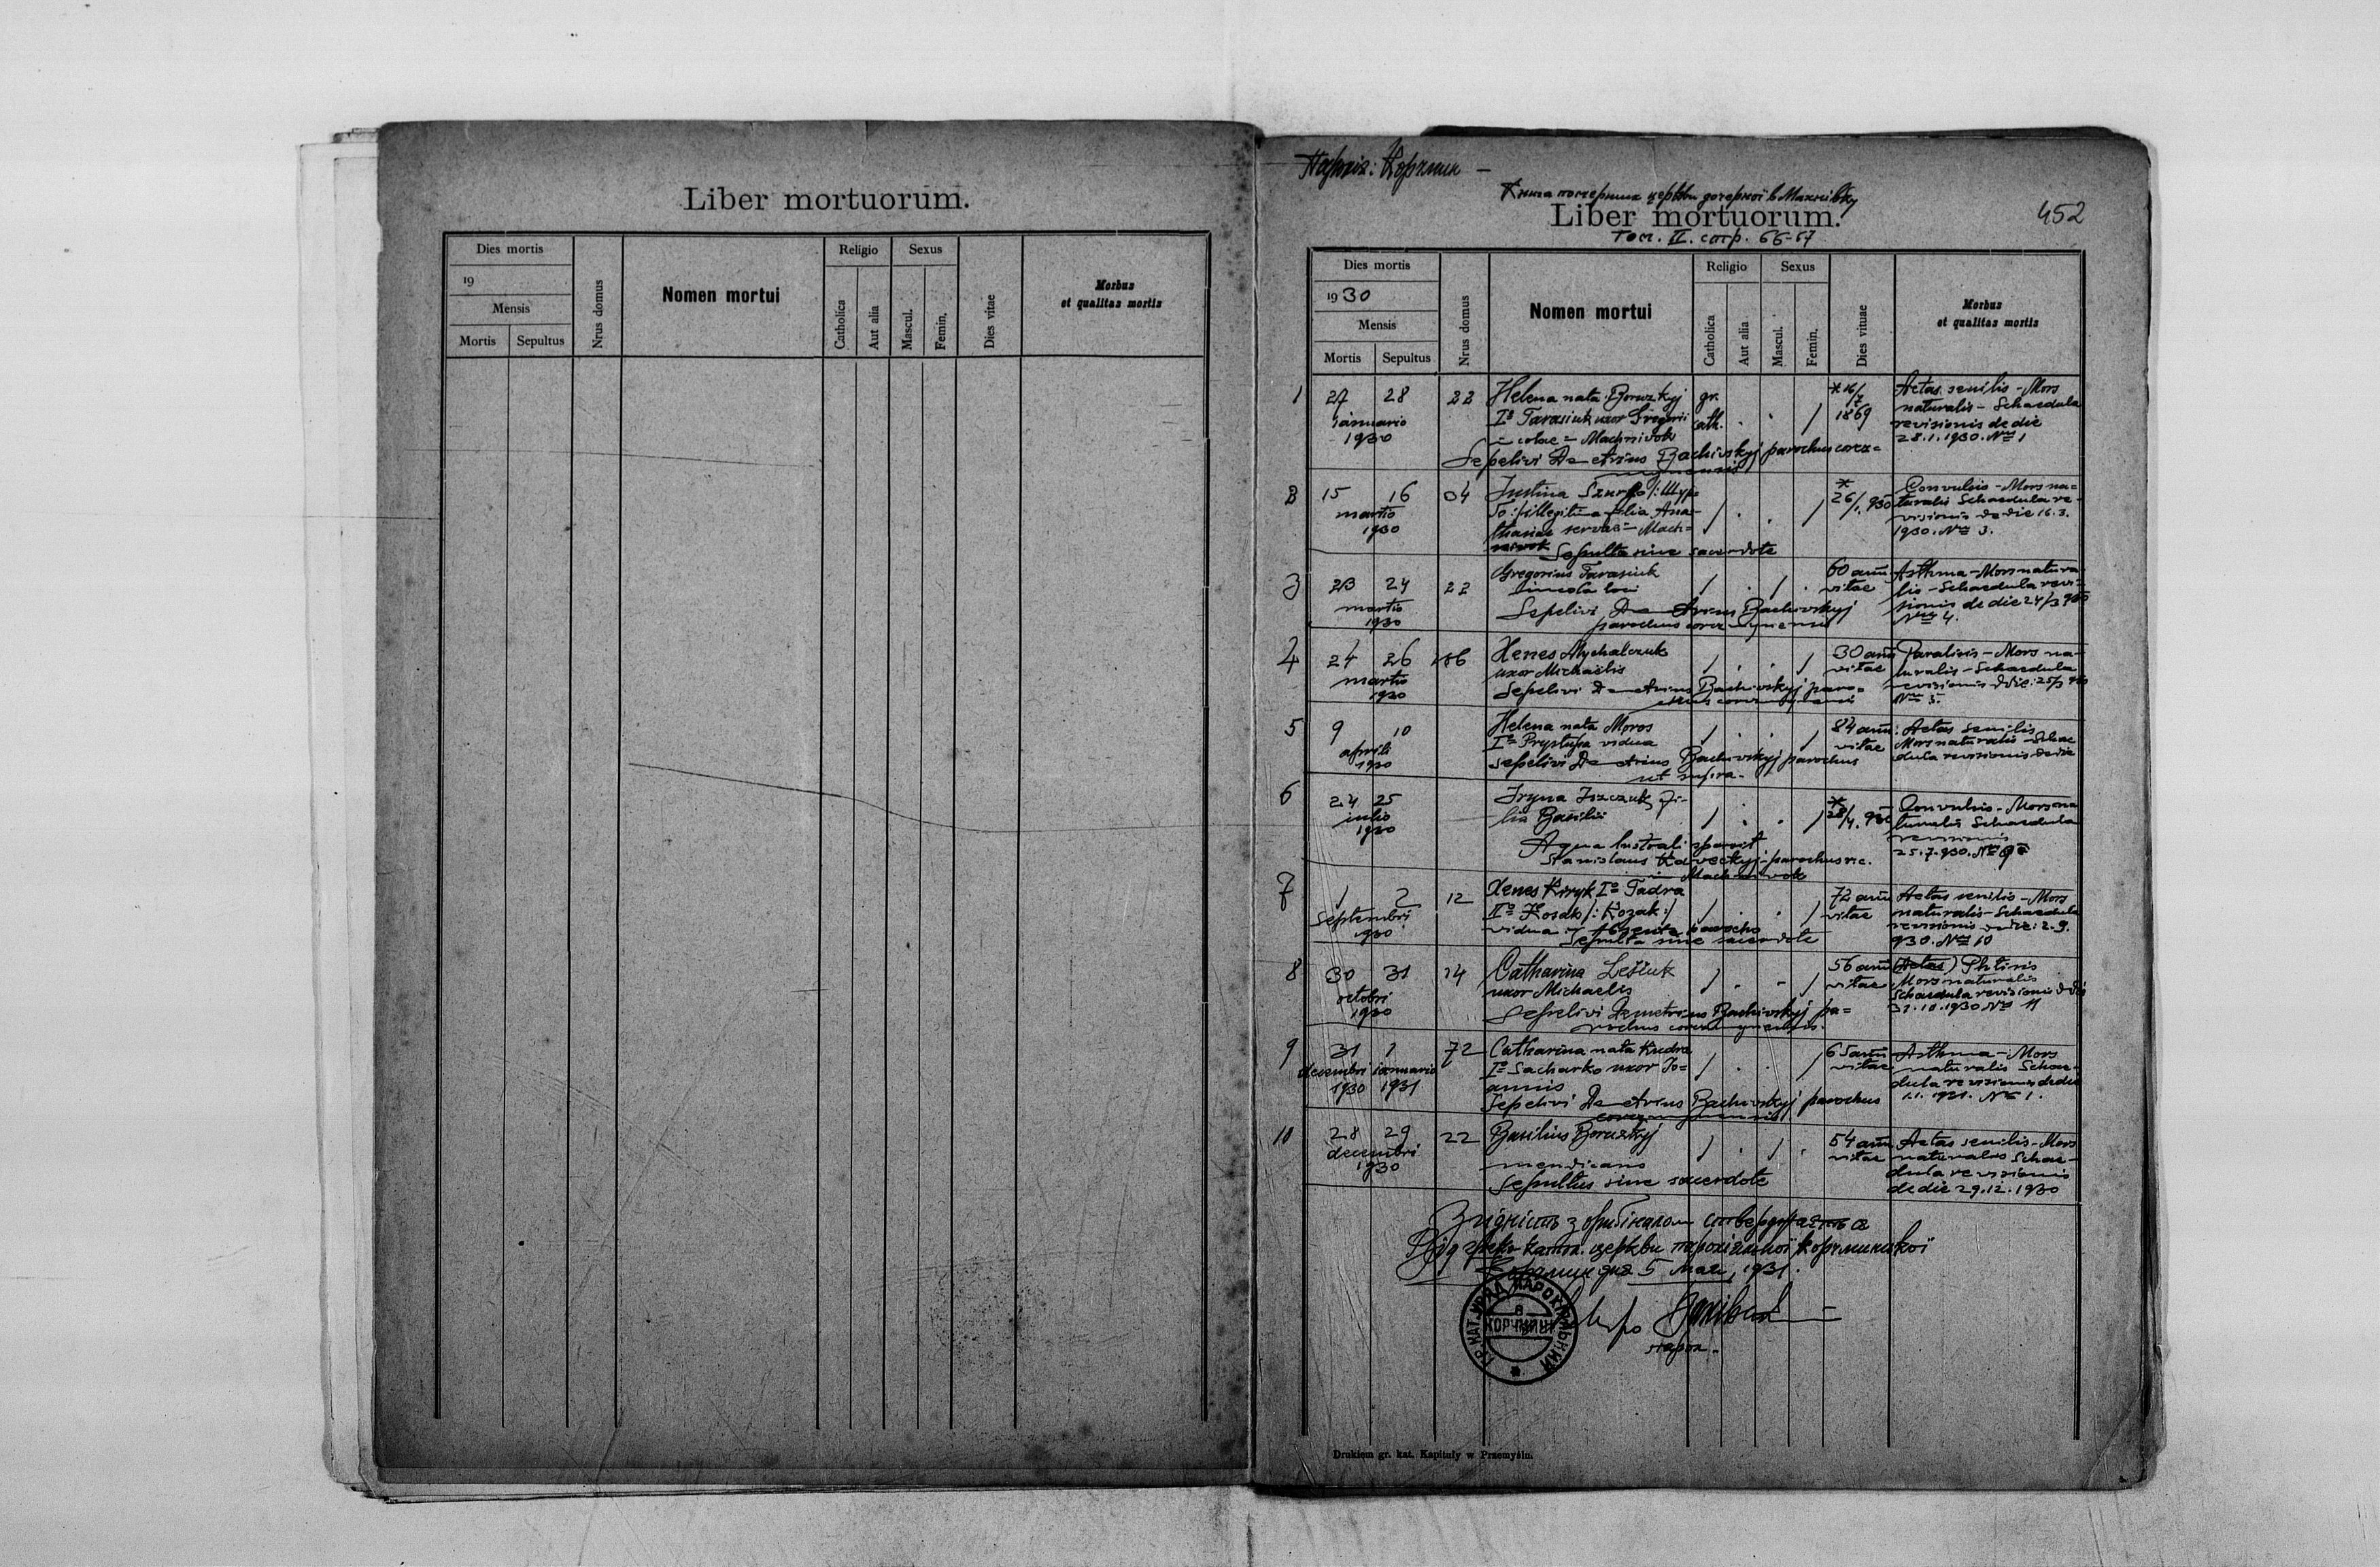 Liber mortuorum.
Dies mortis
19
Mensis
Mortis Sepultus
Nrus domus
Nomen mortui
Religio
Catholica
Aut alia
Sexus
Mascul.
Femin.
Dies vitae
Morbus
et qualitas mortis
452
Liber mortuorum.
Том. II. стр. 66-67
Dies mortis
1930
Mensis
Mortis Sepultus
Nrus domus
Nomen mortui
Religio
Catholica
Aut alia
Sexus
Mascul.
Femin.
Dies vituae
Morbus
et qualitas mortis
1 27 28 22 Helena nata Boruzkyj gr. / *16/7 Aetas senilis - Mors
ianuario Iº Tarasiuk uxor Gregorii cath. . . 1869 naturalis - Schaedula
1930 Machnivok revisionis de die
28.1.1930. Nro 1
Sepelivi Demetrius Bachivskyj parochus corcz=
mynensis
15 16 04 Justina
martio illegitima filia Ana-
1930 thasiae servae - Mach=
nivok Sepulta sine sacerdote
* 26/1. 930 Convulsio - Mors na=
turalis Schaedula re-
visionis de die 16.3.
1930. Nro 3.
3 23 24 22 Gregorius Tarasiuk / . / . 60 ann Asthma - Mors natura
martio incola loci vitae lis - Schaedula revi-
1930 sionis de die 24/3 930
Nro 4.
Sepelivi Demetrius Bachivskyj
parochus corczmynensis
4 24 26 Xenes Mychalczuk / . . / 30 ann Paralisis - Mors na-
martio uxor Michaelis vitae turalis - Schaedula
1930 Sepelivi Demetrius Bachivskyj paro=
chus corczmynensis
revisionis d die: 25/3 930
Nro 5.
5 9 10 Helena nata Moros / . . / 84 ann: Aetas senilis
aprili Iº Prystupa vidua vitae Mors naturalis - Schae
1930 Sepelivi Demetrius Bachivskyj parochus dula revisionis de die
ut supra -
6 24 25 Iryna Iszczuk fi- / . . / * 28/4. 930 Convulsio - Mors na
iulio lia Basilii turalis Schaedula
1930 revisionis
25.7.930. Nro 9
Aqua lustrali sparsit
Stanislaus parochus r.c.
in Machnivok
7 1 2 12 Xenes Kiryk Iº Fadra / . . / 72 ann Aetas senilis - Mors
Septembri IIº Kosdo /: Kozak :/ vitae naturalis - Schaedula
1930 vidua Absente parocho revisionis d die: 2.9.
Sepulta sine sacerdote 930. Nro 10
8 30 31 14 Catharina Lesiuk / . - / 56 ann (Aetas) Phtisis
octobri uxor Michaelis vitae Mors naturalis
1930 Schaedula revisionis d die
31.10.1930 Nro 11
Sepelivi Demetrius Bachivskyj pa=
rochus corczmynensis.
9 31 1 72 Catharina nata Kudra / . . / 65 ann Asthma - Mors
decembri ianuario Iº Sacharko uxor Jo= vitae naturalis Schae-
1930 1931 annis dula revisionis de die
1.1. 1931. Nro 1.
Sepelivi Demetrius Bachivskyj parochus
corczmynensis
10 28 29 22 Basilius Boruzkyj / . / . 54 ann Aetas senilis - Mors
decembri mendicans vitae naturalis Schae-
1930 Sepultus sine sacerdote dula revisionis
de die 29.12.1930
Згідність з оригіналом стверджається
Від греко катол. церкви парохіальної Корчминської
Корчмин дня 5 мая, 1931.
ГР. КАТ. УРЯД ПАРОХІЯЛЬНИЙ
В
КОРЧМИНІ
парох.
Drukiem gr. kat. Kapituły w Przemyślu.